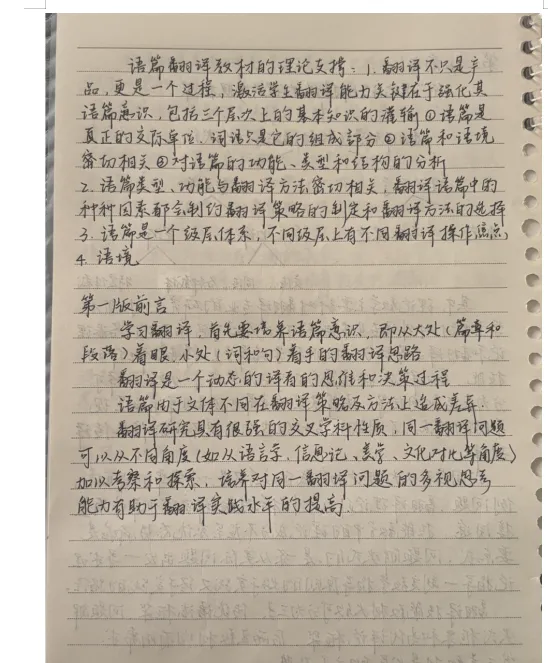 语篇翻译教材的理论支撑：1. 翻译不只是产
品，更是一个过程；激活学生翻译能力关键在于强化其
语篇意识，包括三个层次上的基本知识的灌输①语篇是
真正的交际单位，词语只是它的组成部分②语篇和语境
密切相关③对语篇的功能、类型和结构的分析
2. 语篇类型、功能与翻译方法密切相关，翻译语篇中的
种种因素都会制约翻译策略的制定和翻译方法的选择
3. 语篇是一个级层体系，不同级层上有不同翻译操作焦点
4. 语境
第一版前言
学习翻译，首先要培养语篇意识，即从大处（篇章和
段落）着眼，小处（词和句）着手的翻译思路
翻译是一个动态的译者的思维和决策过程
语篇由于文体不同在翻译策略及方法上造成差异.
翻译研究具有很强的交叉学科性质；同一翻译问题
可以从不同角度（如从语言学、信息论、美学、文化对比等角度）
加以考察和探索，培养对同一翻译问题的多视思考
能力有助于翻译实践水平的提高.